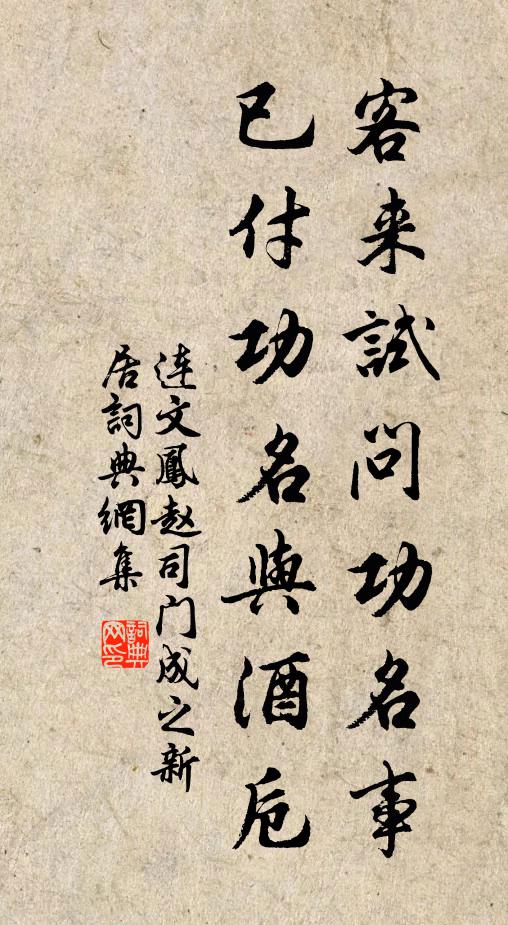 客来試问功名事
已付功名與酒卮
连文鳳赵司门成之新
居詞典網集
詞典
网印